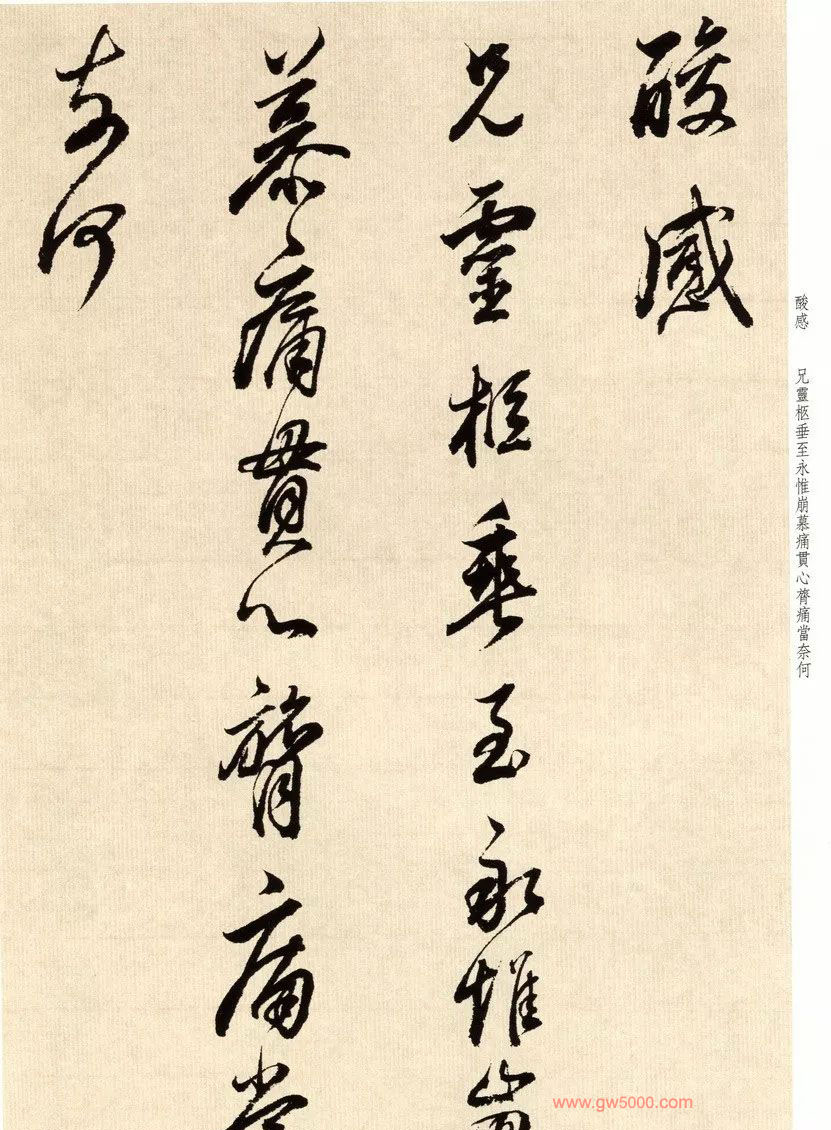 酸感
兄靈柩垂至永惟崩
慕痛貫心膂痛當
奈何
酸感 兄靈柩垂至永惟崩慕痛貫心膂痛當奈何
www.gw5000.com